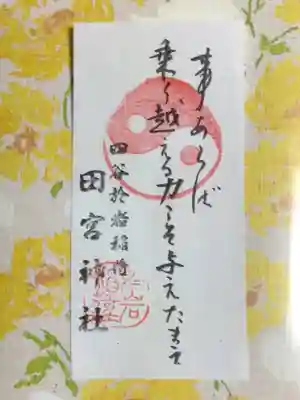 事あらば
乗り越える力こそ与えたまえ
四谷於岩稲荷
田宮神社